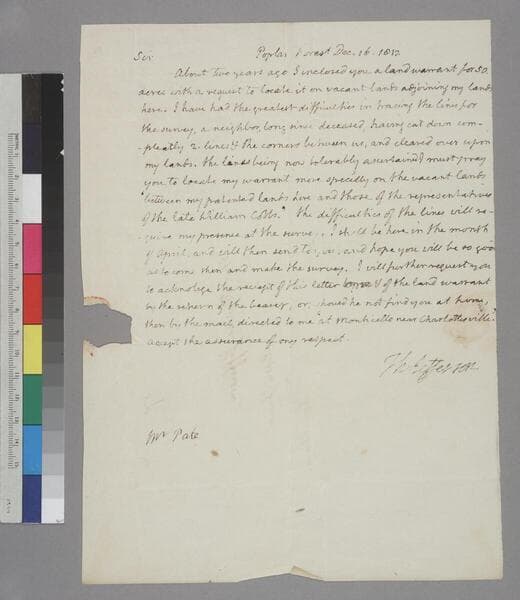 Sir Poplar Forest Dec. 16. 1812
About two years ago I inclosed you a land warrant for 50
acres with a request to locate it on vacant lands adjoining my lands
here. I have had the greatest difficulties in tracing the lines for
the survey, a neighbor, long since deceased, having cut down com-
-pleatly 2. lines & the corner between us, and cleared over upon
my lands. the lines being now tolerably ascertained I must pray
you to locate my warrant more specially on the vacant lands
"between my patented lands here and those of the representatives
of the late William Cobbs." the difficulties of the lines will re-
quire my presence at the survey. I shall be here in the month
of April, and will then send to you, and hope you will be so good
as to come then and make the survey. I will further request you
to acknolege the reciept of this letter & of the land warrant
by the return of the bearer, or, should he not find you at home,
then by the mail, directed to me "at Monticello near Charlottesville."
accept the assurance of my respect.
Th: Jefferson
Mr Pate